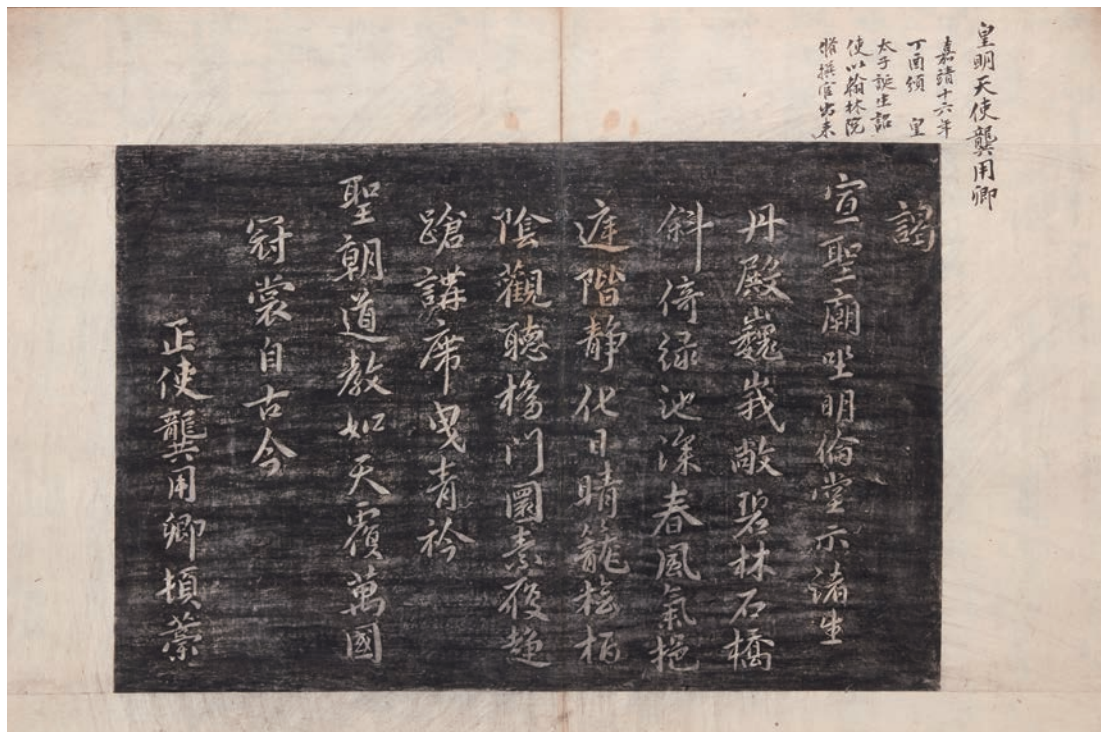 皇明天使龔用卿
嘉靖十六年
丁酉頒 皇
太子誕生詔
使以翰林院
脩撰官出來
謁
宣聖廟坐明倫堂示諸生
丹殿巍峩敞碧林石橋
斜倚綠池深春風氣挹
庭階靜化日晴籠檜栢
陰觀聽橋門圜素履趨
蹌講席曳青衿
聖朝道教如天覆萬國
冠裳自古今
正使龔用卿頓藁